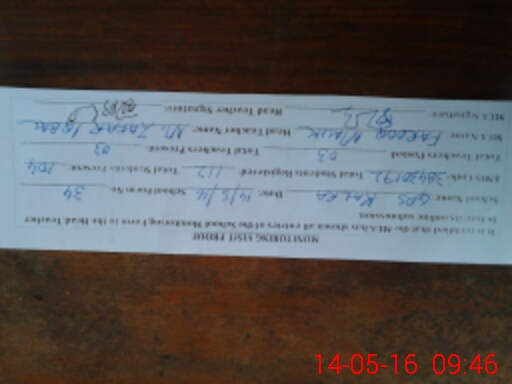 MONITORING VISIT PROOF
It is certified that the MEA has shown all entries of the School Monitoring Form to the Head Teacher
before its online submission.
School Name: GPS KALRA Date: 14/5/16 School Form No: 34
EMIS Code: Total Students Registered: 112 Total Students Present: 104
Total Teachers Posted: 03 Total Teachers Present: 03
MEA Name: FAROOQ MALIK Head Teacher Name: M. ZAFAR IQBAL
MEA Signature: Head Teacher Signature:
14-05-16 09:46